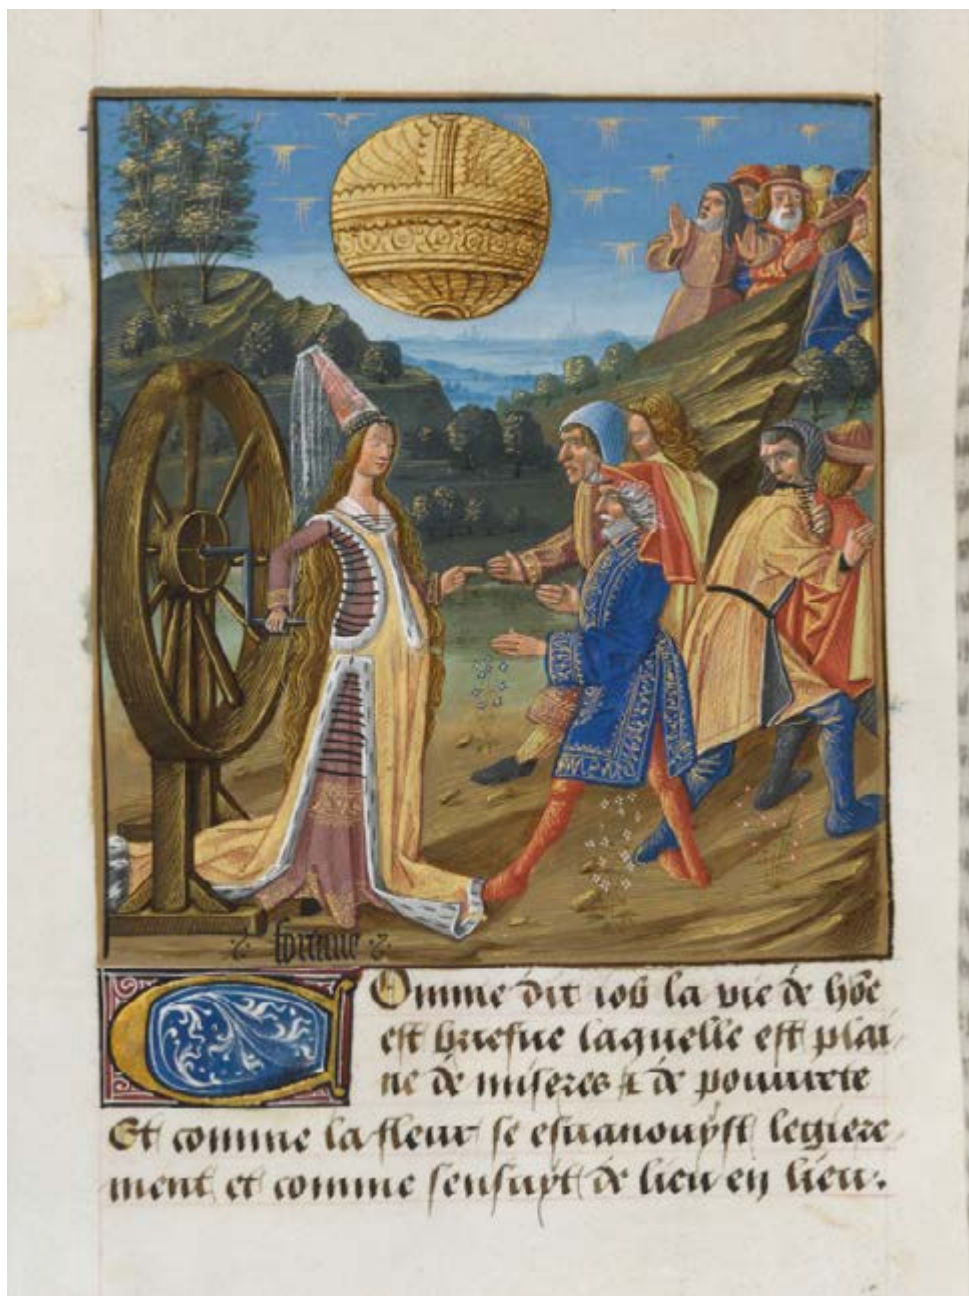 fortune
Comme dit iob la vie de hōe
est briefue laquelle est plai
ne de miseres & de pouurete
Et comme la fleur se esuanouyst legiere
ment et comme sensuyt de lieu en lieu.